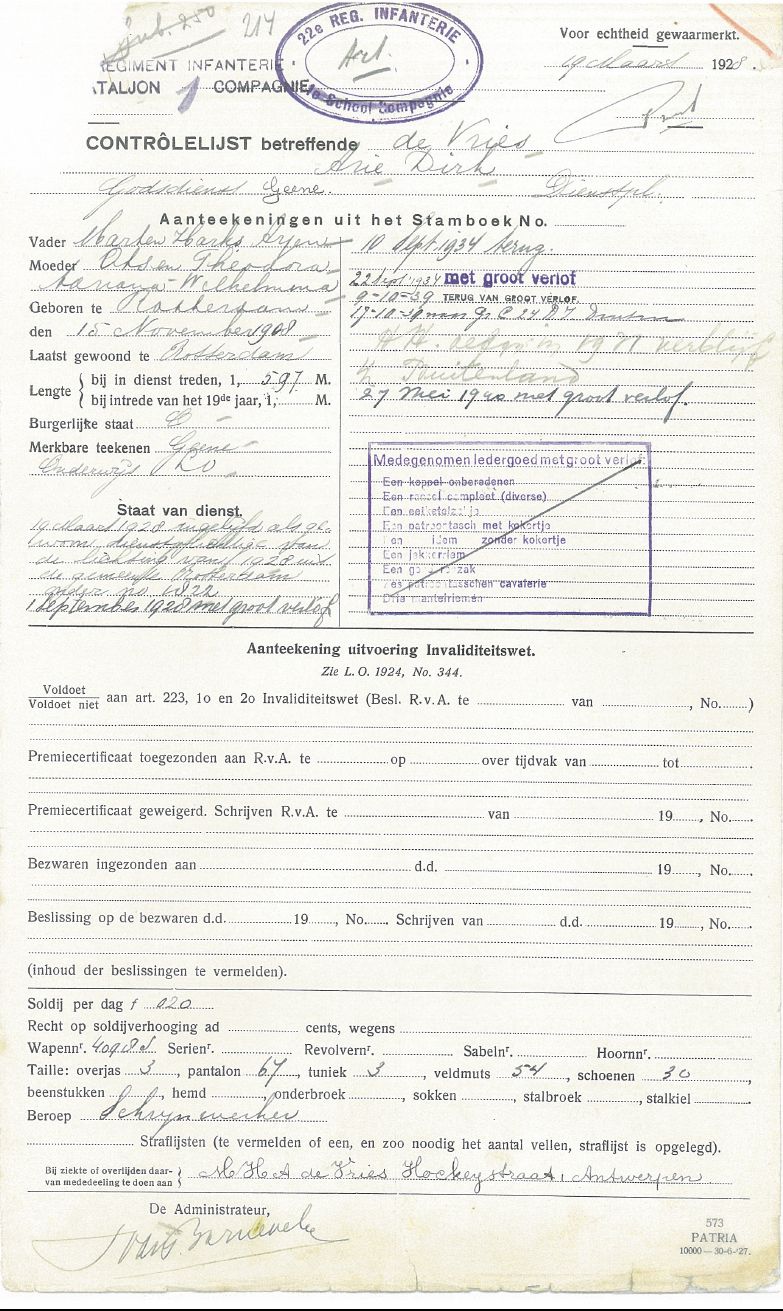 Jub. 250 214
22e REG. INFANTERIE
1e School Kompagnie
Voor echtheid gewaarmerkt.
19 Maart 1928.
REGIMENT INFANTERIE
ATALJON 1 COMPAGNIE
CONTRÔLELIJST betreffende de Vries
Arie Dirk
Godsdienst Geene. Dienstpl.
Aanteekeningen uit het Stamboek No.
Vader Marten Harks Arjen
Moeder Theodora
Adriana Wilhelmina
Geboren te Rotterdam
den 15 November 1908
Laatst gewoond te Rotterdam
Lengte { bij in dienst treden, 1, 597 M.
bij intrede van het 19de jaar, 1, M.
Burgerlijke staat O
Merkbare teekenen Geene
Onderwijs LO
Staat van dienst.
19 Maart 1928 ingelijfd als ge-
woon dienstplichtige van
de lichting van 1928 uit
de gemeente Rotterdam
onder no 1822
1 September 1928 met groot verlof
10 Sept. 1934 terug.
22 Sept 1934 met groot verlof
9-10-39 TERUG VAN GROOT VERLOF.
17-10-39 naar
verblijf
Buitenland
27 Mei 1940 met groot verlof.
Medegenomen ledergoed met groot verlof:
Een koppel onberedenen
Een ransel compleet (diverse)
Een
Een patroontasch met kokertje
Een idem zonder kokertje
Een jekkerriem
Een zak
Zes patroontasschen cavalerie
Drie mantelriemen
Aanteekening uitvoering Invaliditeitswet.
Zie L. O. 1924, No. 344.
Voldoet
Voldoet niet aan art. 223, 1o en 2o Invaliditeitswet (Besl. R.v.A. te van , No. )
Premiecertificaat toegezonden aan R.v.A. te op over tijdvak van tot
Premiecertificaat geweigerd. Schrijven R.v.A. te van 19 , No.
Bezwaren ingezonden aan d.d. 19 , No.
Beslissing op de bezwaren d.d. 19 , No. Schrijven van d.d. 19 , No.
(inhoud der beslissingen te vermelden).
Soldij per dag f 020
Recht op soldijverhooging ad cents, wegens
Wapennr. Serienr. Revolvernr. Sabelnr. Hoornnr.
Taille: overjas 3, pantalon 67, tuniek 3, veldmuts 54, schoenen 30
beenstukken , hemd , onderbroek , sokken , stalbroek , stalkiel
Beroep Schrijnwerker
Straflijsten (te vermelden of een, en zoo noodig het aantal vellen, straflijst is opgelegd).
Bij ziekte of overlijden daar-
van mededeeling te doen aan } M H A de Vries Hockeystraat, Antwerpen
De Administrateur,
573
PATRIA
10000 — 30-6-'27.